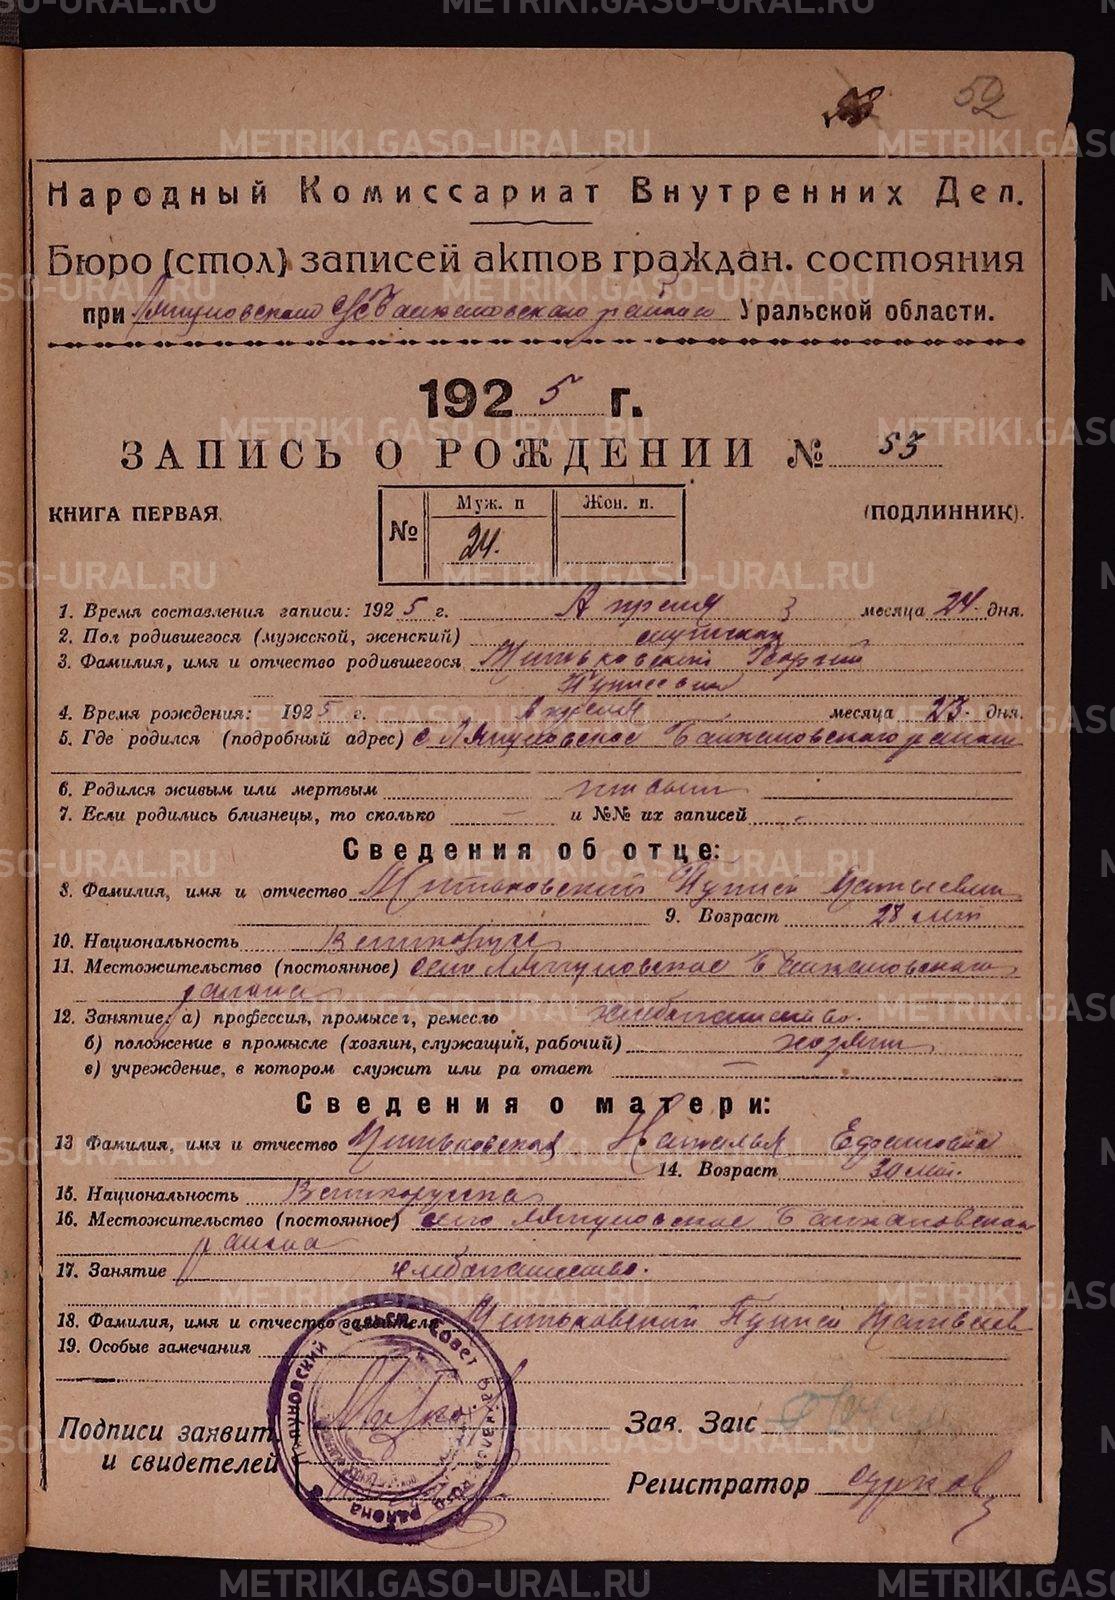 52
Народный Комиссариат Внутренних Дел.
Бюро (стол) записей актов граждан. состояния
при Ляпуновском с/с Байкаловского района Уральской области.
1925 г.
ЗАПИСЬ О РОЖДЕНИИ № 53
КНИГА ПЕРВАЯ.
(ПОДЛИННИК).
№ Муж. п Жен. п.
24.
1. Время составления записи: 1925 г. Апреля месяца 24 дня.
2. Пол родившегося (мужской, женский) мужской
3. Фамилия, имя и отчество родившегося Мит ьковский Георгий
4. Время рождения: 1925 г. апреля месяца 23 дня.
5. Где родился (подробный адрес) с Ляпуновское Байкаловского района
6. Родился живым или мертвым живым
7. Если родились близнецы, то сколько — и №№ их записей -
Сведения об отце:
8. Фамилия, имя и отчество Митьковский
9. Возраст 28 лет
10. Национальность Великорусс
11. Местожительство (постоянное) село Ляпуновское Байкаловского
района
12. Занятие: а) профессия, промысел, ремесло хлебопашество.
б) положение в промысле (хозяин, служащий, рабочий) хозяин
в) учреждение, в котором служит или ра отает —
Сведения о матери:
13 Фамилия, имя и отчество Митьковская Наталья Ефимовна
14. Возраст 30 лет.
15. Национальность Великорусска
16. Местожительство (постоянное) село Ляпуновское Байкаловского
района
17. Занятие хлебопашество.
18. Фамилия, имя и отчество заявителя Митьковский
19. Особые замечания
Подписи заявит.
и свидетелей
Зав. Загс
Регистратор Сурков
Ляпуновский Сельст Совет Байкалов района
METRIKI.GASO-URAL.RU